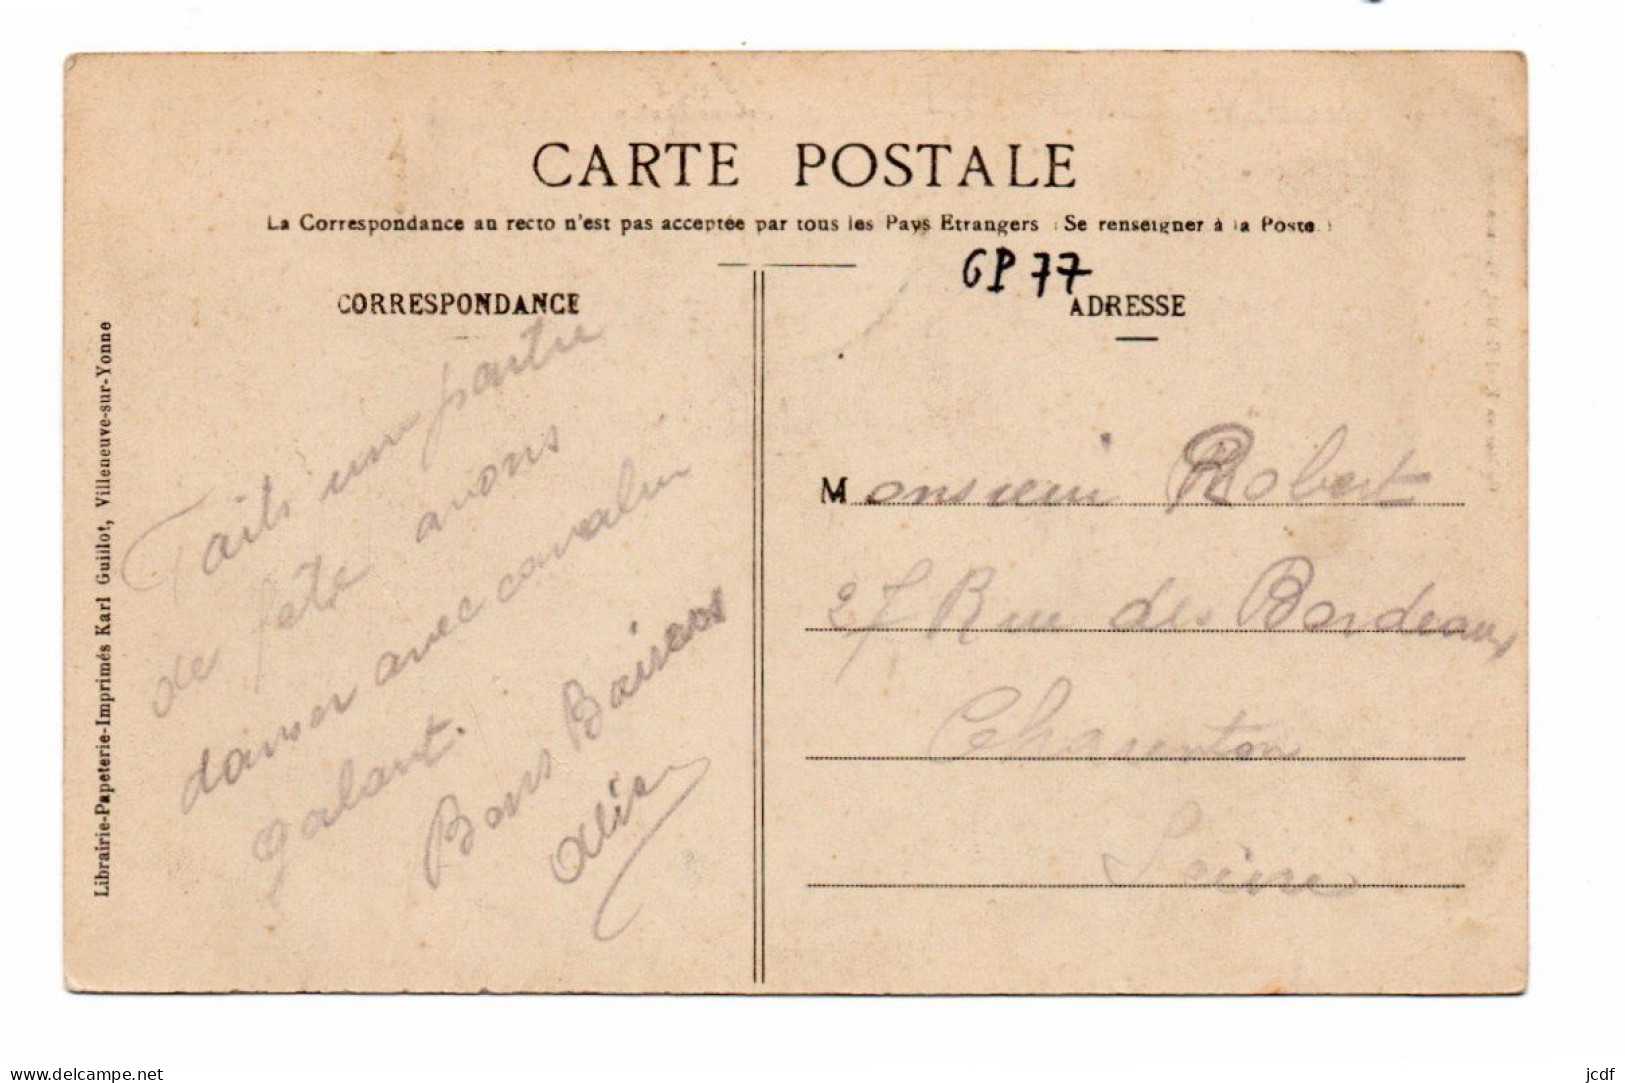 CARTE POSTALE
La Correspondance au recto n'est pas acceptée par tous les Pays Etrangers (Se renseigner à la Poste.)
CORRESPONDANCE
Faits une partie
de fete avons
danser avec cavalier
galant.
Bons Baisers
Alis
Librairie-Papeterie-Imprimés Karl Guillot, Villeneuve-sur-Yonne
GP 77
ADRESSE
Monsieur Robert
27 Rue des Bordeaux
Charenton
Seine
www.delcampe.net
jcdf